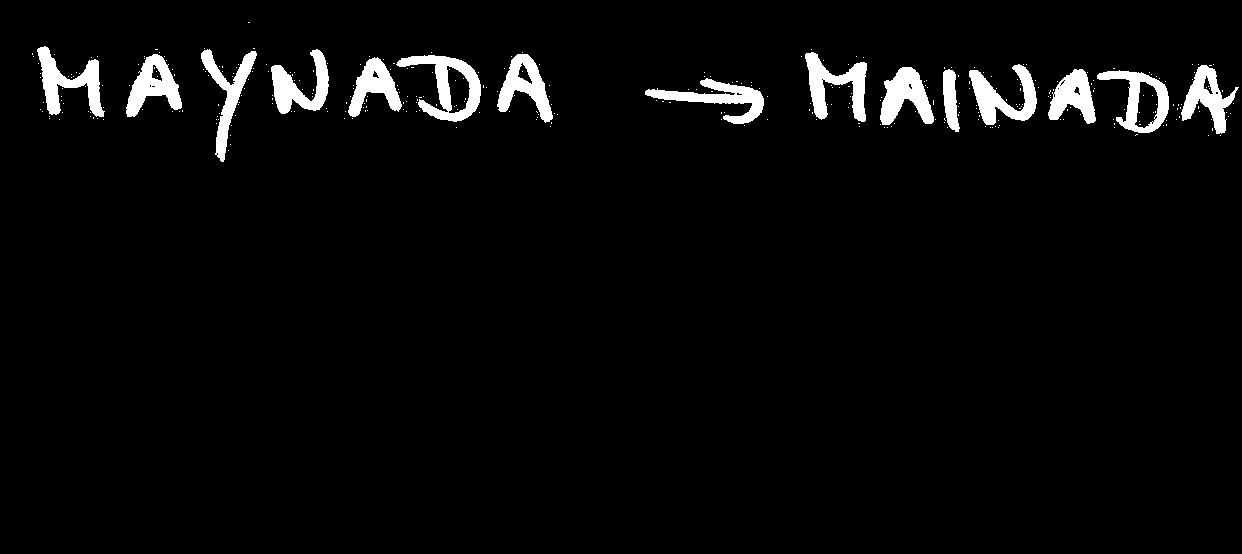 MAYNADA → MAINADA